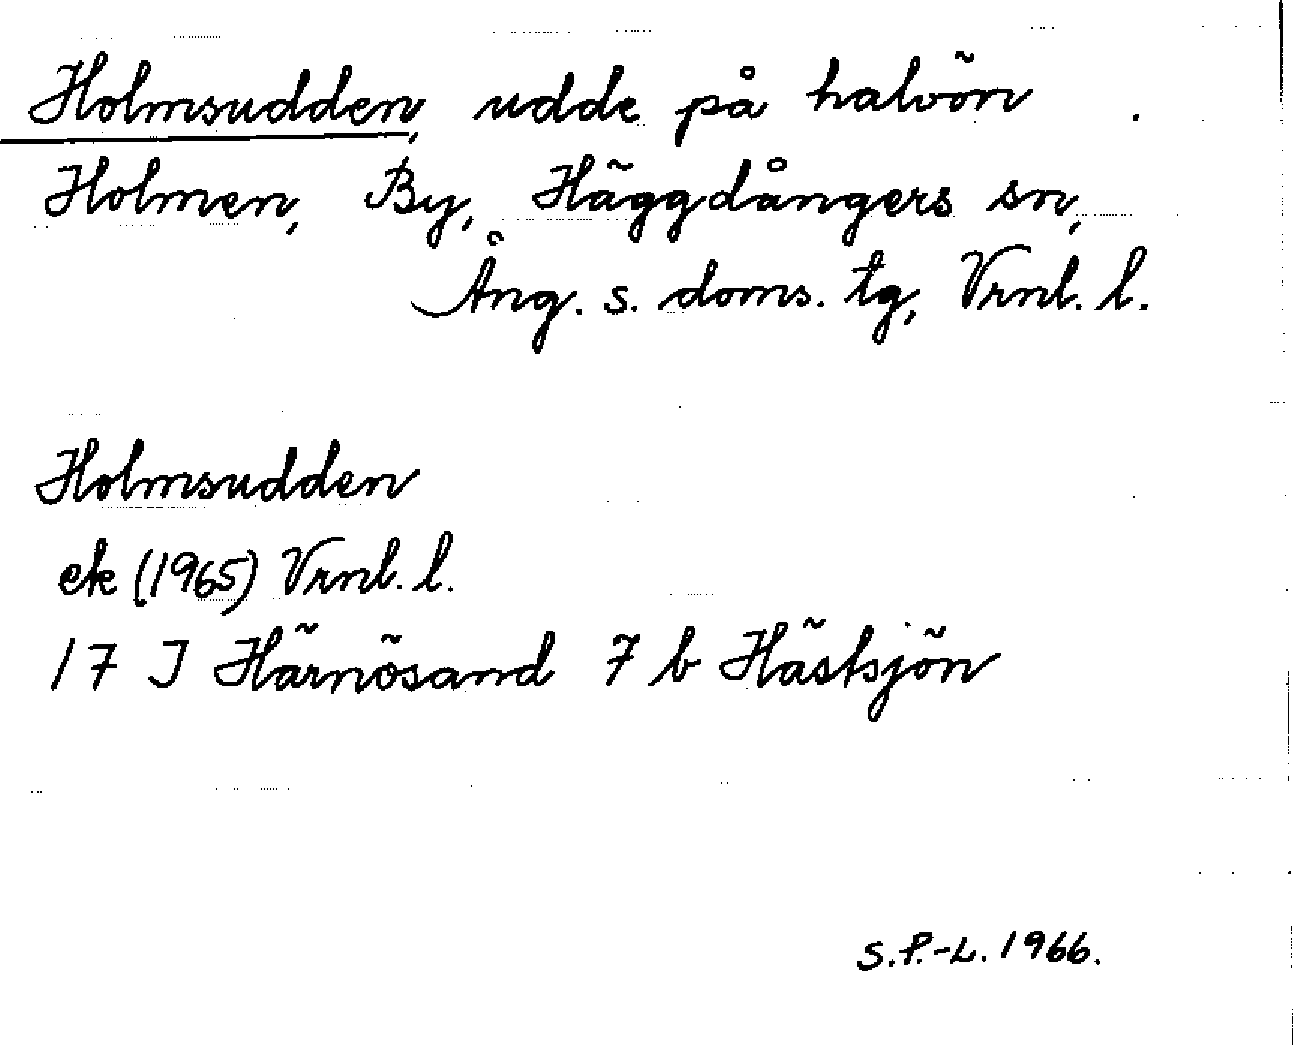 Holmsudden, udde på halvön
Holmen, By, Häggdångers sn,
Ång. s. doms. tg, Vrnl. l.
Holmsudden
ek (1965) Vrnl. l.
17 I Härnösand 7 b Hästsjön
S.P.-L. 1966.